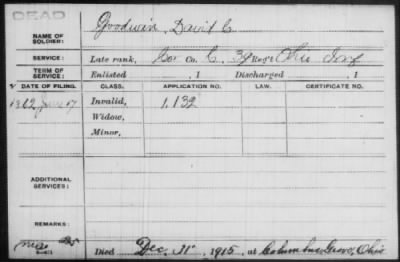 DEAD
NAME OF SOLDIER: Goodwin, David C.
SERVICE: Late rank, Cor Co. C. 39 Reg't Ohio Inf
TERM OF SERVICE: Enlisted , 1 Discharged , 1
DATE OF FILING. CLASS. APPLICATION NO. LAW. CERTIFICATE NO.
1862 June 17 Invalid, 1,132
Widow,
Minor,
ADDITIONAL SERVICES:
REMARKS:
Died Dec. 31, 1915, at Columbus Grove, Ohio